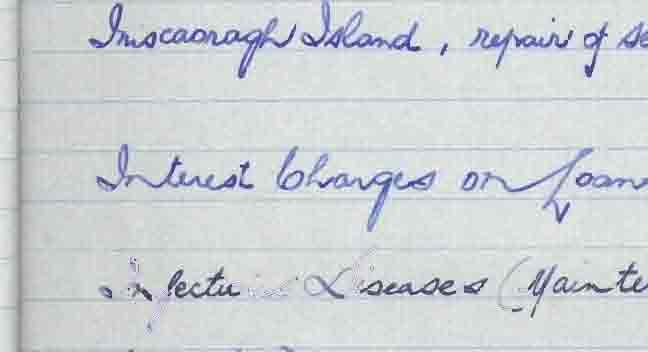 Iniscaoragh Island, repair of se
Interest Charges on Loan
Infectious Diseases (Mainte